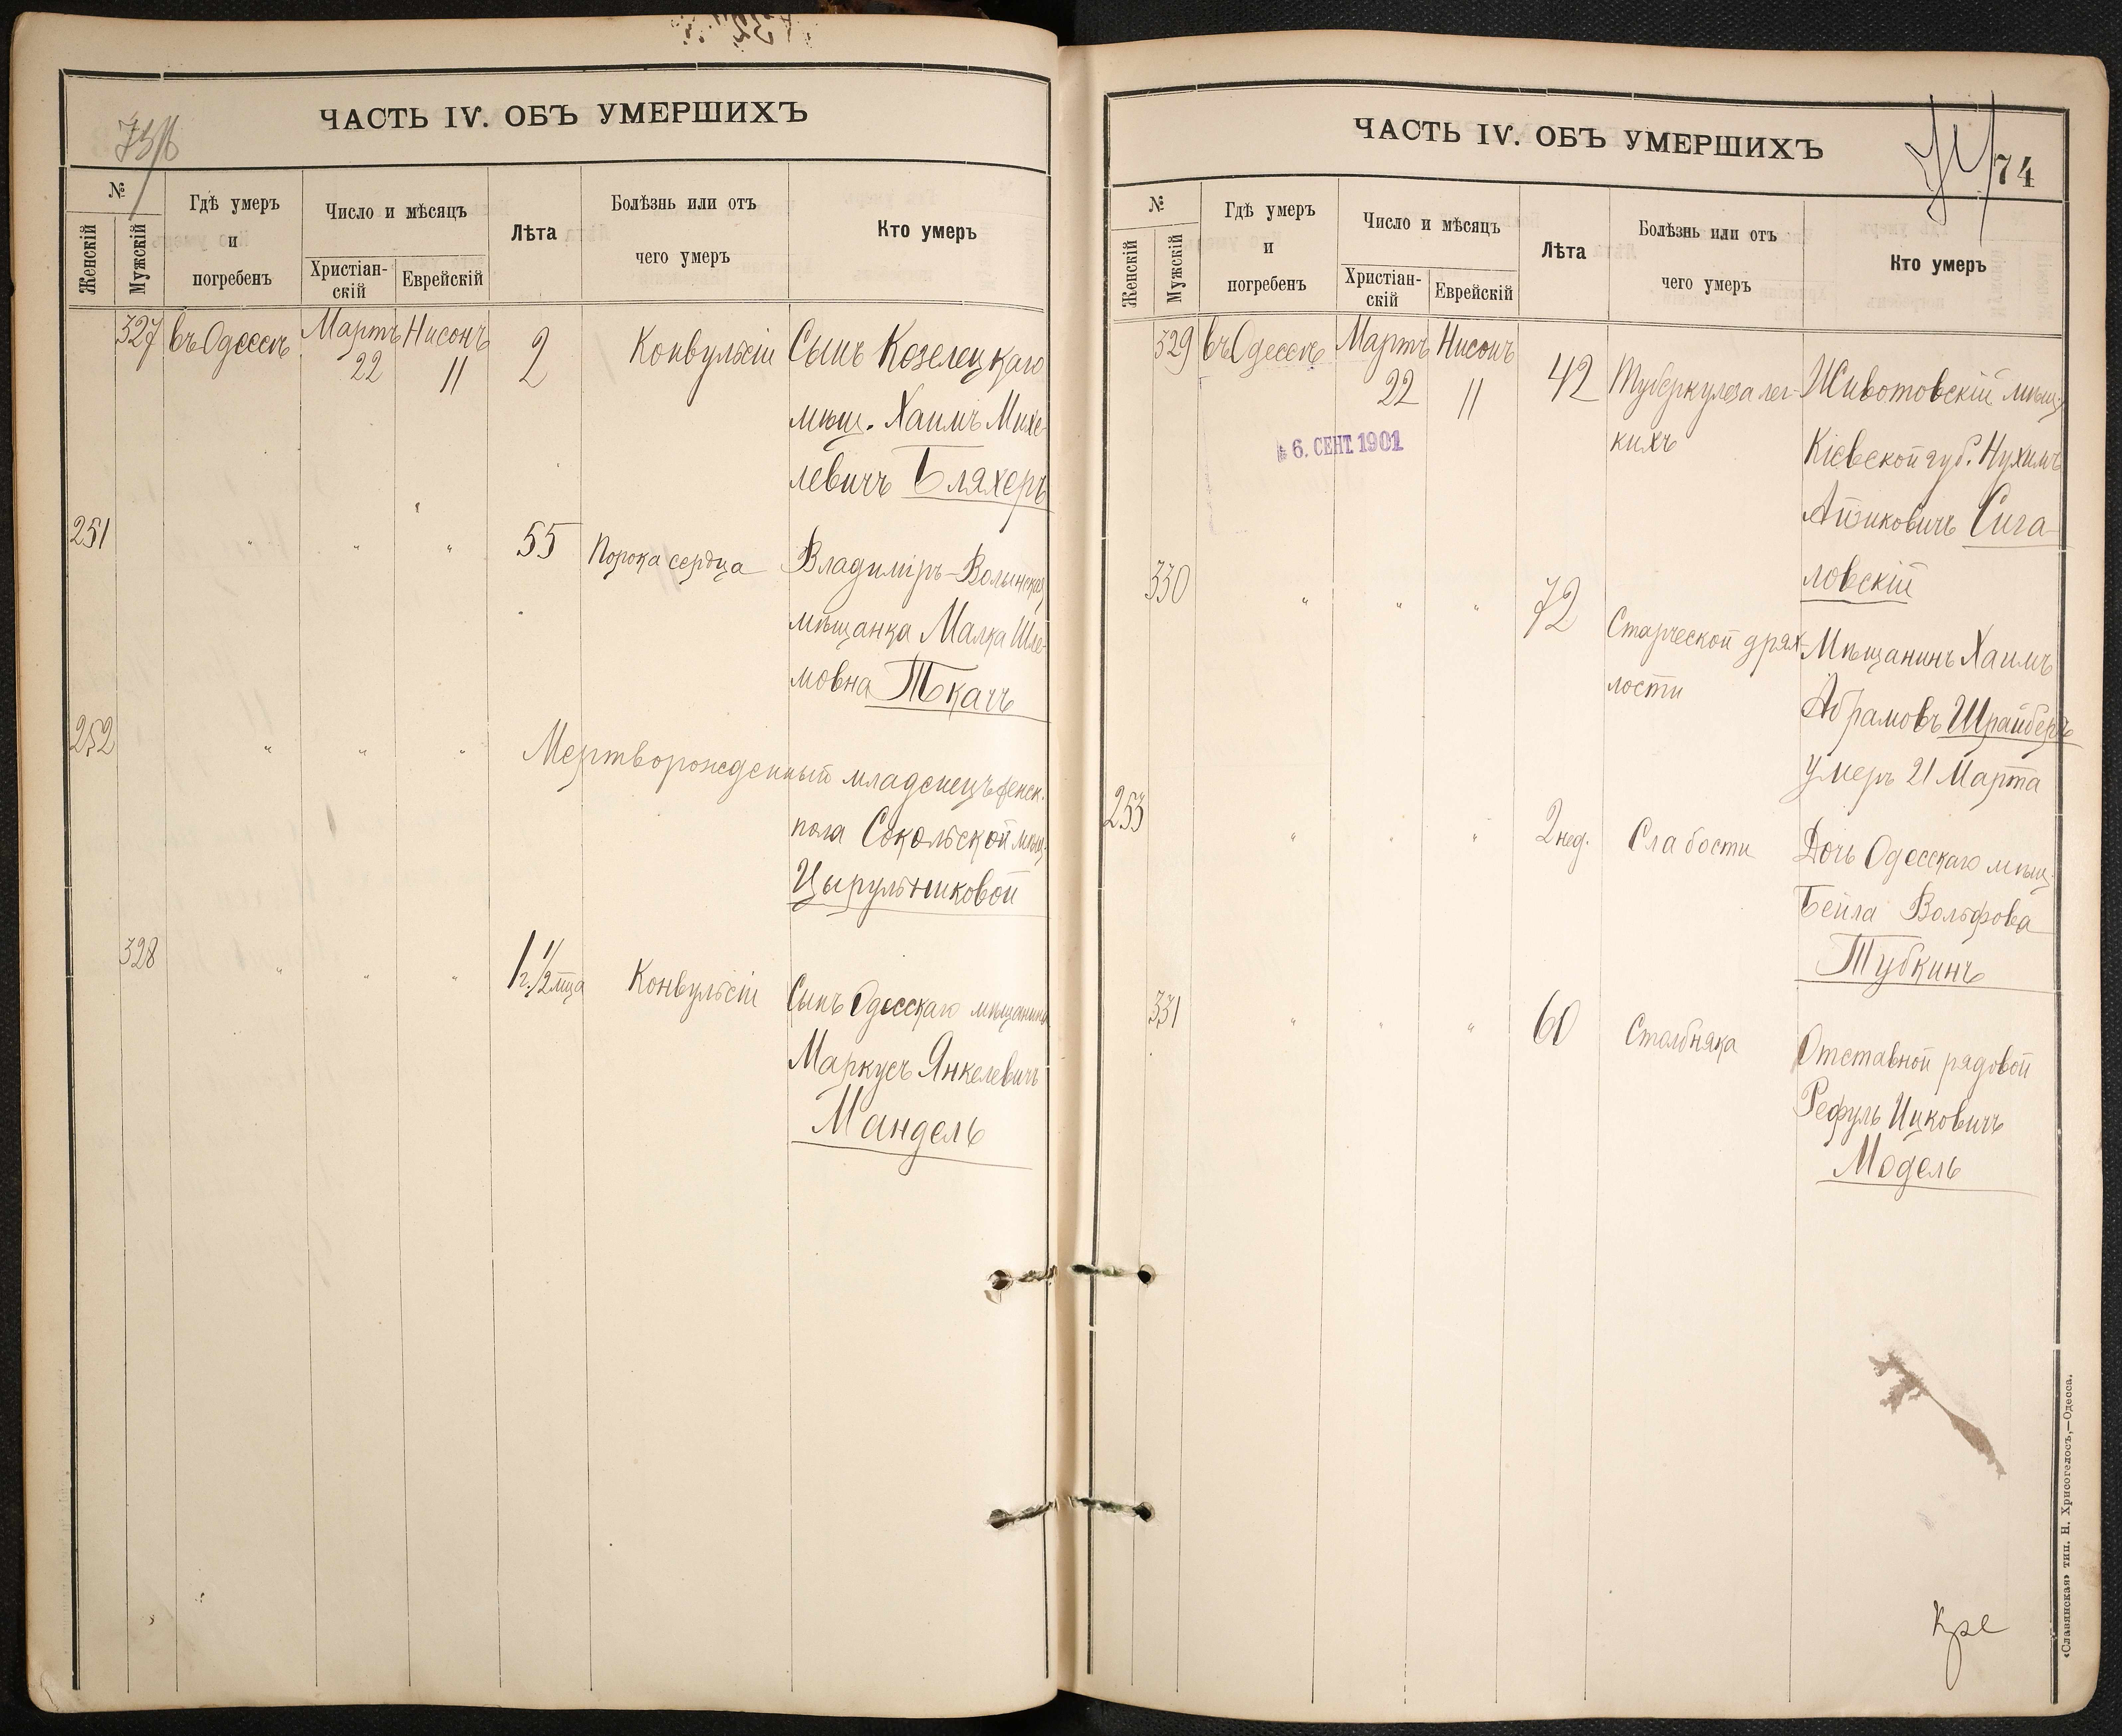 ЧАСТЬ IV. ОБЪ УМЕРШИХЪ
№
Женскій
Мужскій
Гдѣ умеръ
и
погребенъ
Число и мѣсяцъ
Христіан-
скій
Еврейскій
Лѣта
Болѣзнь или отъ
чего умеръ
Кто умеръ
327 въ Одессѣ Мартъ Нисонъ 2 Конвульсіи Сынъ Козелецкаго
22 11
мѣщ. Хаимъ Михе-
левичъ Бляхеръ
251 " " " 55 Порока сердца Владимиръ-Волынская
мѣщанка Малка Шле-
мовна Ткачъ
252 " " " Мертворожденный младенецъ женск.
пола Сокольской мѣщ.
Цырульниковой
328 " " " 1 г. 1/2 мца Конвульсіи Сынъ Одесскаго мѣщанина
Маркусъ Янкелевичъ
Мандель
ЧАСТЬ IV. ОБЪ УМЕРШИХЪ
74
74
№
Женскій
Мужскій
Гдѣ умеръ
и
погребенъ
Число и мѣсяцъ
Христіан-
скій
Еврейскій
Лѣта
Болѣзнь или отъ
чего умеръ
Кто умеръ
329 въ Одессѣ Мартъ Нисонъ 42 Туберкулеза лег- Животовскій мѣщ.
22 11
6. СЕНТ. 1901
кихъ Кіевской губ. Нухимъ
Айзиковичъ Сига-
ловскій
330 " " " 72 Старческой дрях- Мѣщанинъ Хаимъ
лости Абрамовъ Шрайберъ
умеръ 21 Марта
253 " " " 2 нед. Слабости Дочь Одесскаго мѣщ.
Бейла Вольфова
Тубкинъ
331 " " " 60 Столбняка Отставной рядовой
Рефуль Ицковичъ
Модель
«Славянская» тип. Н. Хрисогелосъ,—Одесса.